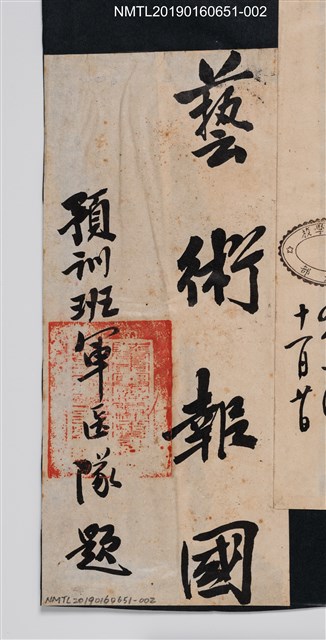 NMTL20190160651-002
藝術報國
預訓班軍医隊題
十一月廿日
NMTL20190160651-002